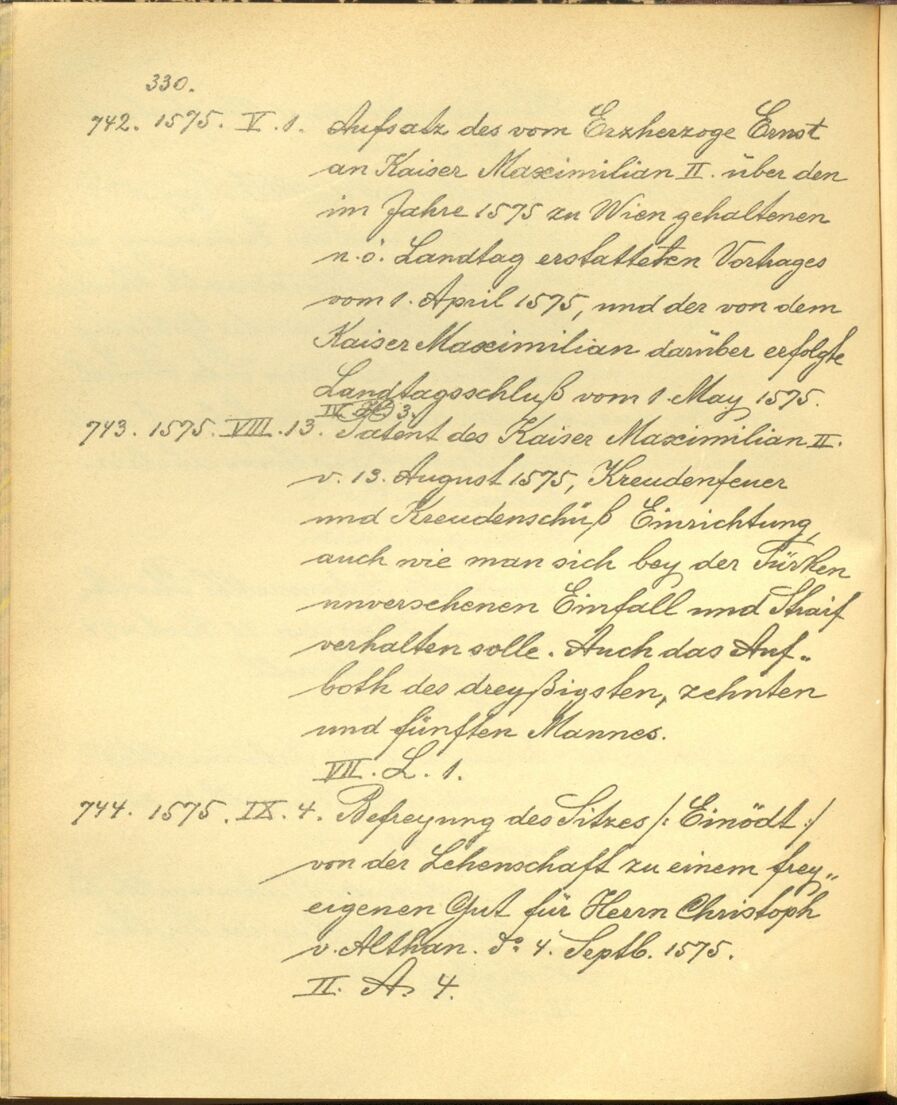 330.
742. 1575. V. 1. Aufsatz des vom Erzherzoge Ernst
an Kaiser Maximilian II. über den
im Jahre 1575 zu Wien gehaltenen
n. ö. Landtag erstatteten Vortrages
vom 1. April 1575, und der von dem
Kaiser Maximilian darüber erfolgte
Landtagsschluß vom 1. May 1575.
IV. 3.
743. 1575. VIII. 13. Patent des Kaiser Maximilian II.
v. 13. August 1575, Kreudenfeuer
und Kreudenschüß Einrichtung,
auch wie man sich bey der Türken
unversehenen Einfall und Straif
verhalten solle. Auch das Auf„
both des dreyßigsten, zehnten
und fünften Mannes.
VII. L. 1.
744. 1575. IX. 4. Befreyung des Sitzes /: Einödt :/
von der Lehenschaft zu einem frey„
eigenen Gut für Herrn Christoph
v. Althan. do 4. Septb. 1575.
II. A. 4.